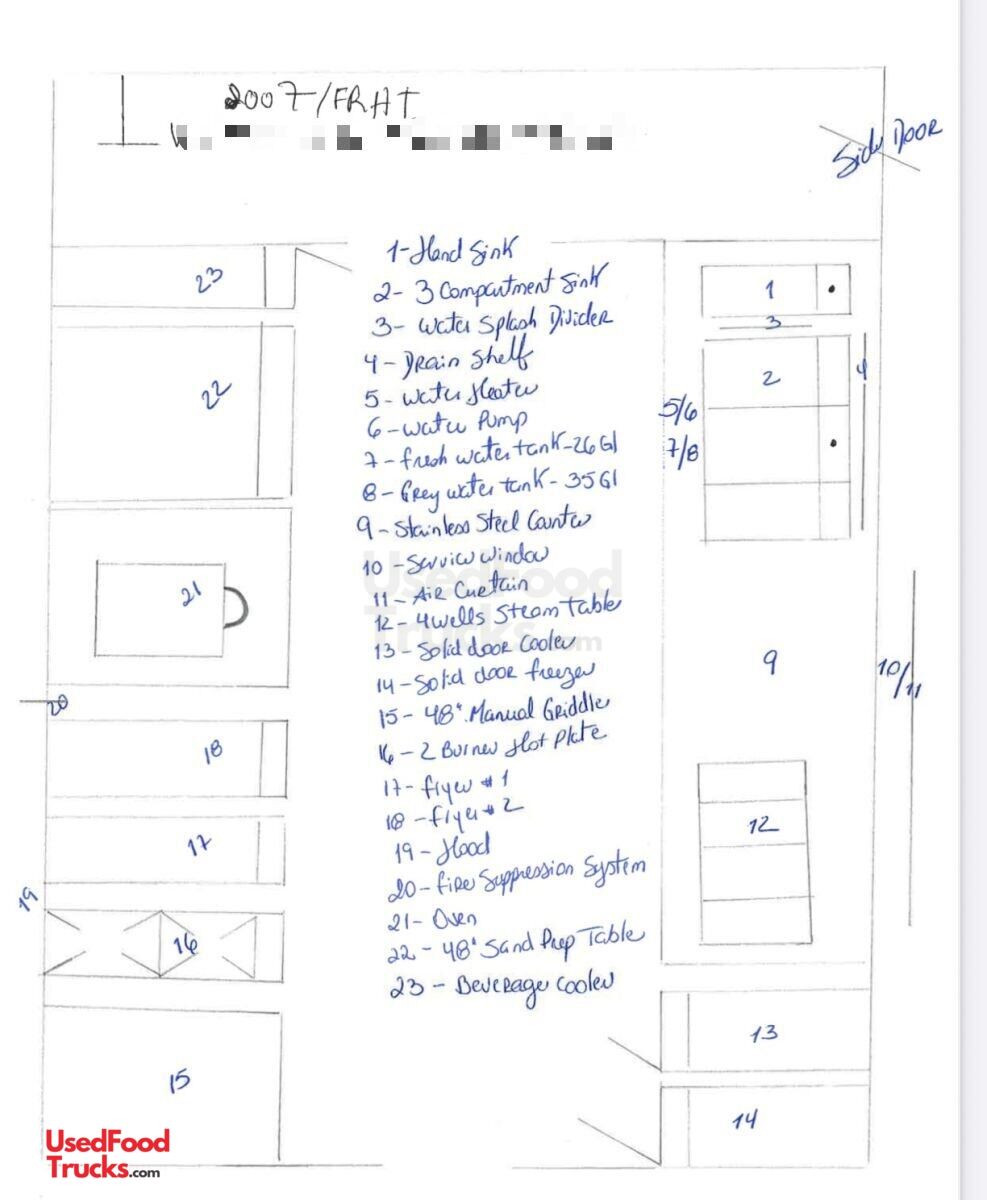 2007/FRHT
Side Door
1-Hand Sink
2- 3 Compartment Sink
3- Water Splash Divider
4- Drain Shelf
5- Water Heater
6- Water Pump
7- fresh water tank-26 Gl
8- Grey water tank- 35 Gl
9- Stainless Steel Counter
10 -Service window
11- Air Curtain
12- 4 wells Steam Table
13- Solid door Cooler
14- Solid door freezer
15- 48" Manual Griddle
16- 2 Burner Hot Plate
17- fryer #1
18- fryer #2
19- Hood
20- Fire Suppression System
21- Oven
22- 48" Sand Prep Table
23- Beverage Cooler
23
22
21
20
18
17
19
16
15
1
3
2
4
5/6
7/8
9
10/11
12
13
14
UsedFood
Trucks.com
UsedFood
Trucks.com